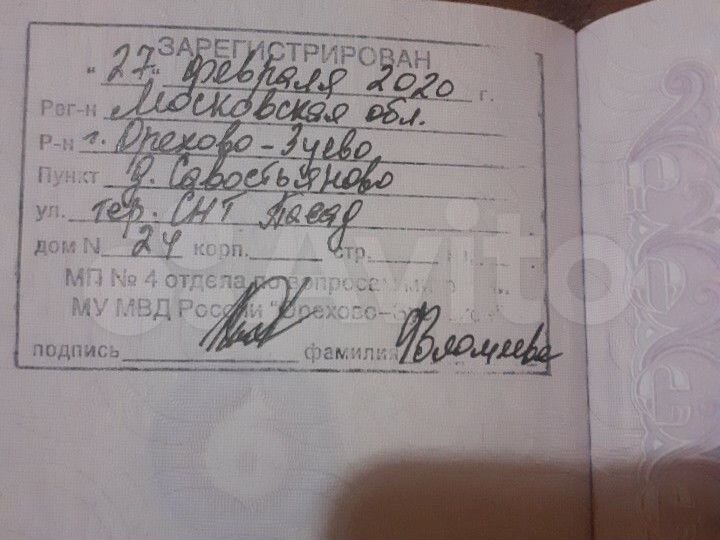 ЗАРЕГИСТРИРОВАН
"27" февраля 2020 г.
Рег-н Московская обл.
Р-н г. Орехово-Зуево
Пункт д. Савостьяново
ул. тер. СНТ Посад
дом N 24 корп. стр.
МП № 4 отдела по вопросам
МУ МВД России "Орехово-
подпись фамилия
Avito